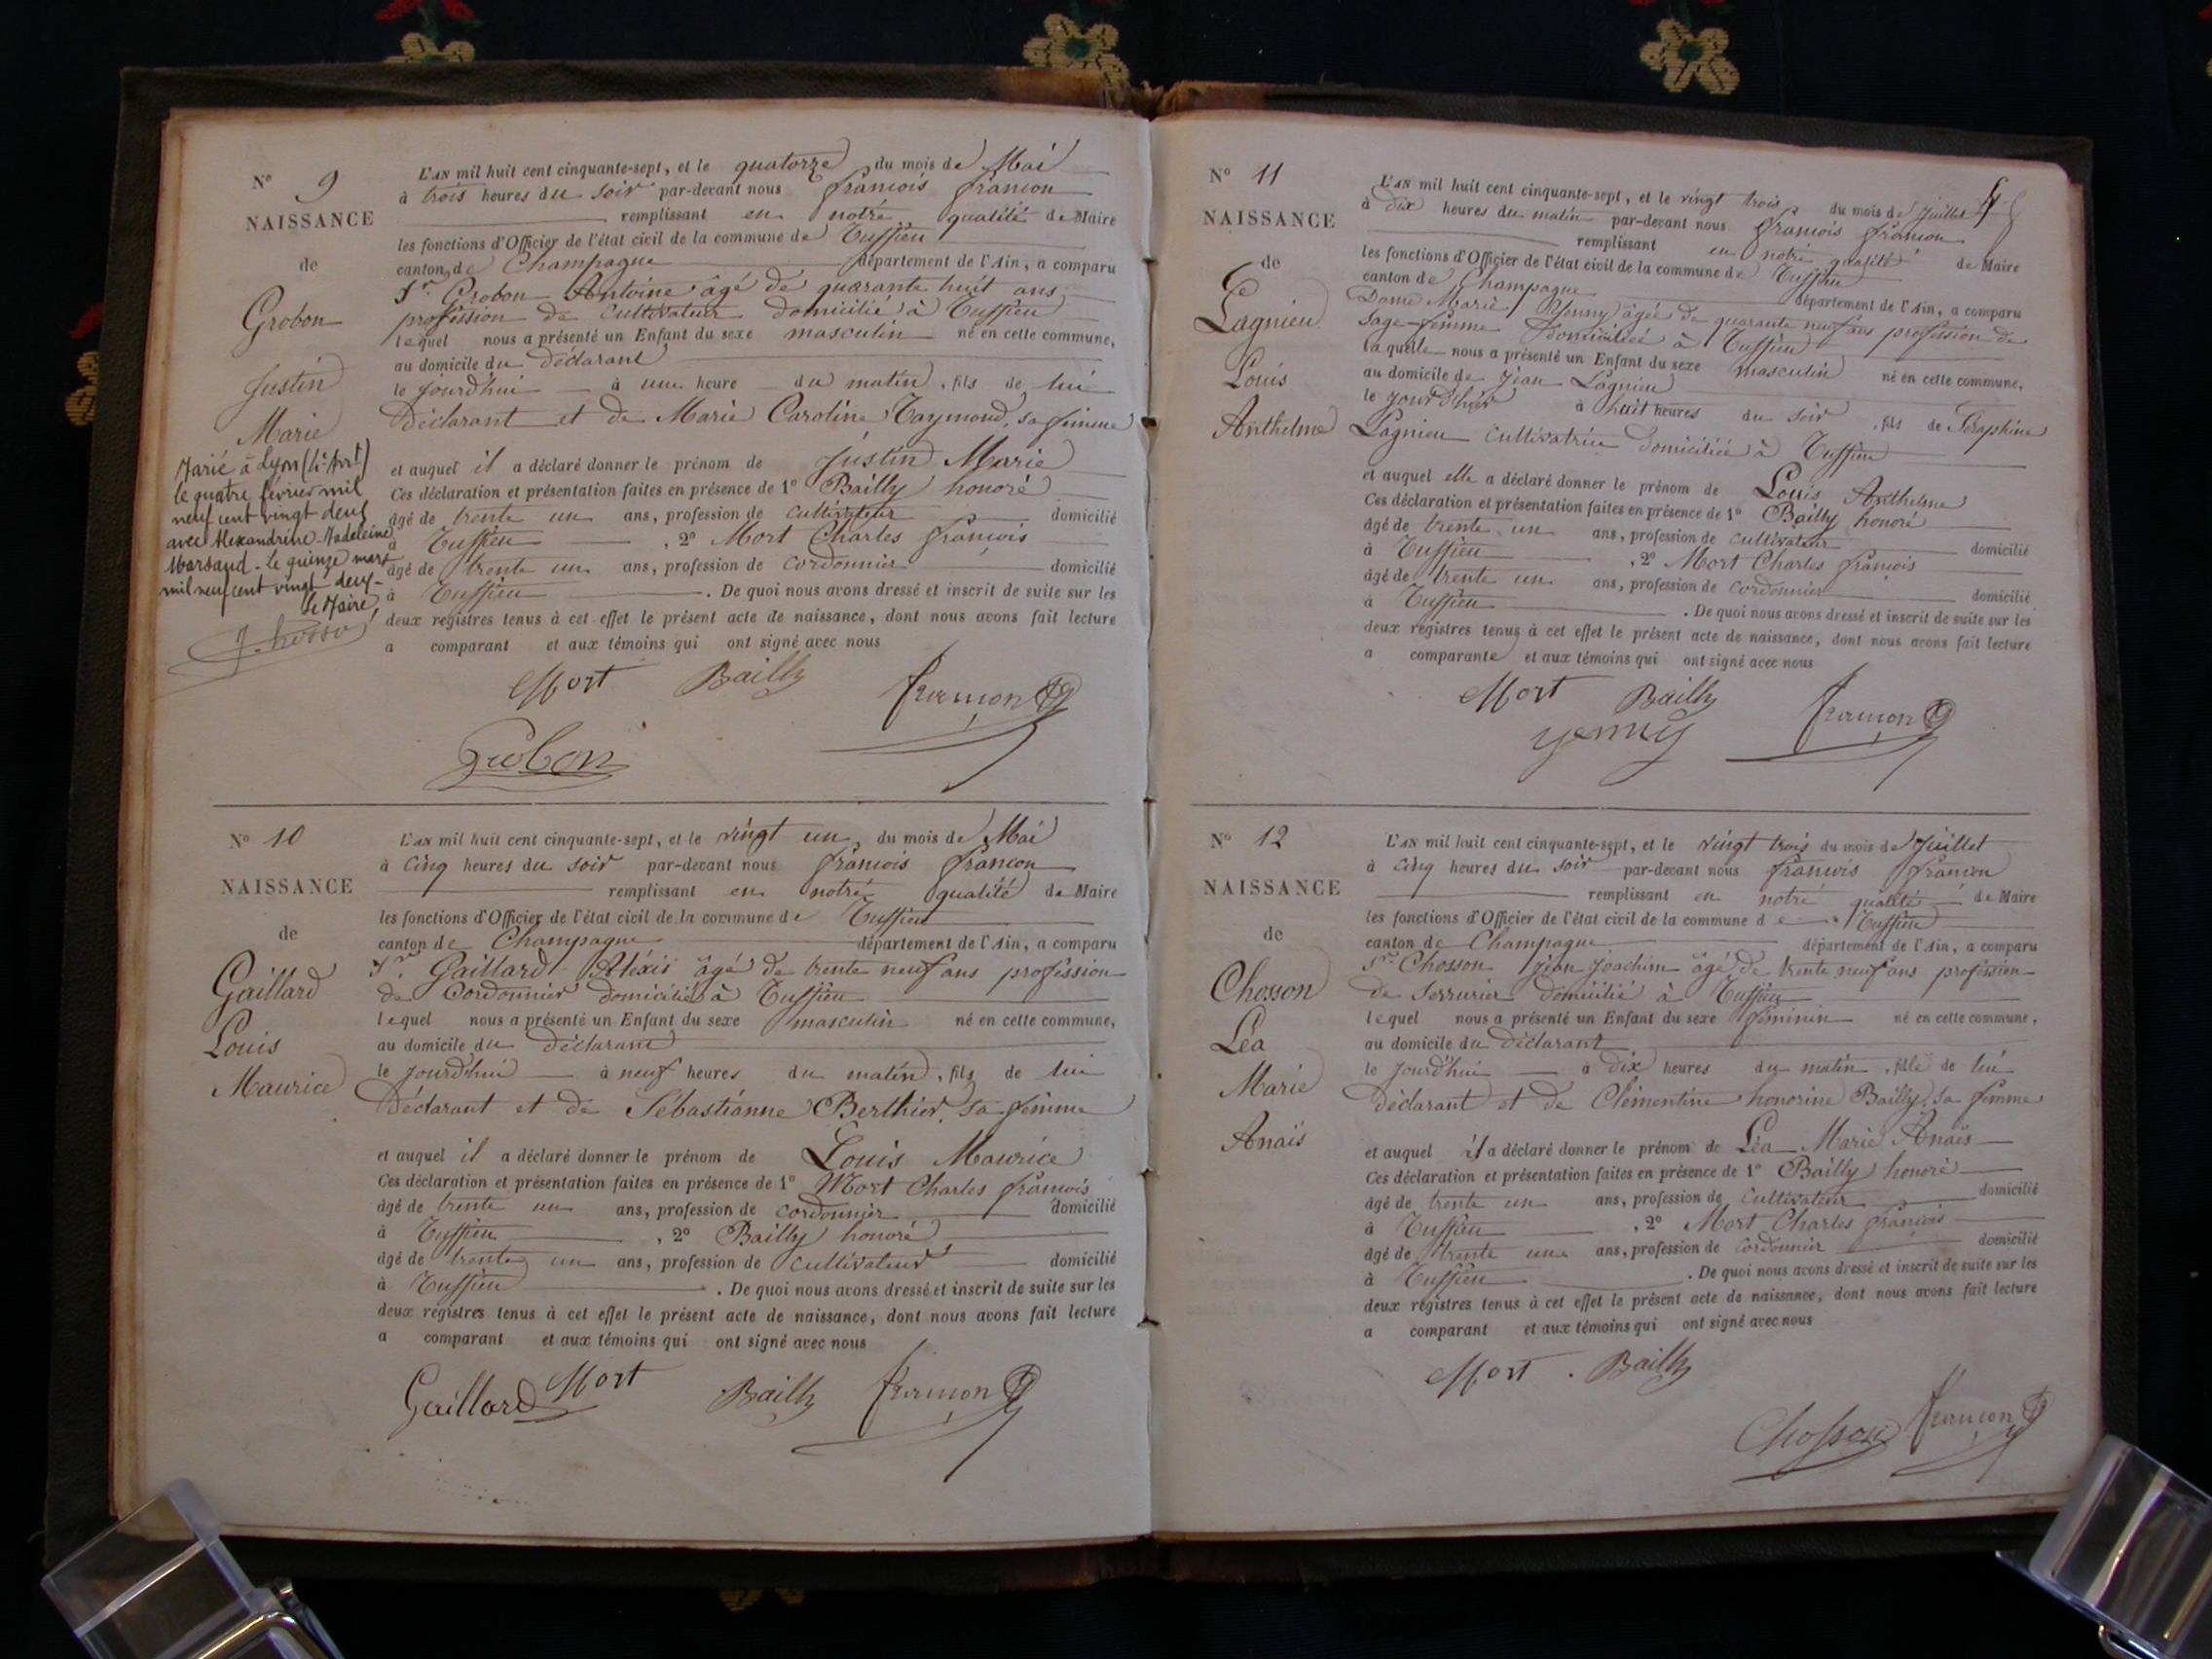 N° 9
NAISSANCE
de
Grobon
Justin
Marie
Marié à Lyon (4e Arrt)
le quatre février mil
neuf cent vingt deux
avec Alexandrine Madeleine
Marsaud - Le quinze mars
mil neuf cent vingt deux -
Le Maire,
L'AN mil huit cent cinquante-sept, et le quatorze du mois de Mai
à trois heures du soir par-devant nous françois françon
remplissant en notre qualité de Maire
les fonctions d'Officier de l'état civil de la commune de Tuffieu
canton de Champagne département de l'Ain, a comparu
Sr. Grobon Antoine âgé de quarante huit ans
profession de cultivateur domicilié à Tuffieu
lequel nous a présenté un Enfant du sexe masculin né en cette commune,
au domicile du déclarant
le jourd'hui à une heure du matin, fils de lui
déclarant et de Marie Caroline Taymond, sa femme
et auquel il a déclaré donner le prénom de Justin Marie
Ces déclaration et présentation faites en présence de 1° Bailly honoré
âgé de trente un ans, profession de cultivateur domicilié
à Tuffieu , 2° Mort Charles françois
âgé de trente un ans, profession de cordonnier domicilié
à Tuffieu . De quoi nous avons dressé et inscrit de suite sur les
deux registres tenus à cet effet le présent acte de naissance, dont nous avons fait lecture
a comparant et aux témoins qui ont signé avec nous
Mort Bailly françon
Grobon
N° 10
NAISSANCE
de
Gaillard
Louis
Maurice
L'AN mil huit cent cinquante-sept, et le vingt un du mois de Mai
à cinq heures du soir par-devant nous françois françon
remplissant en notre qualité de Maire
les fonctions d'Officier de l'état civil de la commune de Tuffieu
canton de Champagne département de l'Ain, a comparu
Sr. Gaillard Aléxis âgé de trente neuf ans profession
de cordonnier domicilié à Tuffieu
lequel nous a présenté un Enfant du sexe masculin né en cette commune,
au domicile du déclarant
le jourd'hui à neuf heures du matin, fils de lui
déclarant et de Sébastianne Berthier, sa femme
et auquel il a déclaré donner le prénom de Louis Maurice
Ces déclaration et présentation faites en présence de 1° Mort Charles françois
âgé de trente un ans, profession de cordonnier domicilié
à Tuffieu , 2° Bailly honoré
âgé de trente un ans, profession de cultivateur domicilié
à Tuffieu . De quoi nous avons dressé et inscrit de suite sur les
deux registres tenus à cet effet le présent acte de naissance, dont nous avons fait lecture
a comparant et aux témoins qui ont signé avec nous
Gaillard Mort Bailly françon
N° 11
NAISSANCE
de
Lagnieu
Louis
Anthelme
L'AN mil huit cent cinquante-sept, et le vingt trois du mois de Juillet
à dix heures du matin par-devant nous françois françon
remplissant en notre qualité de Maire
les fonctions d'Officier de l'état civil de la commune de Tuffieu
canton de Champagne département de l'Ain, a comparu
Dame Marie Yenny âgée de quarante neuf ans profession de
sage-femme domiciliée à Tuffieu
laquelle nous a présenté un Enfant du sexe masculin né en cette commune,
au domicile de Jean Lagnieu
le jour d'hier à huit heures du soir, fils de Séraphine
Lagnieu cultivatrice domiciliée à Tuffieu
et auquel elle a déclaré donner le prénom de Louis Anthelme
Ces déclaration et présentation faites en présence de 1° Bailly honoré
âgé de trente un ans, profession de cultivateur domicilié
à Tuffieu , 2° Mort Charles françois
âgé de trente un ans, profession de cordonnier domicilié
à Tuffieu . De quoi nous avons dressé et inscrit de suite sur les
deux registres tenus à cet effet le présent acte de naissance, dont nous avons fait lecture
a comparante et aux témoins qui ont signé avec nous
Mort Bailly françon
yenny
N° 12
NAISSANCE
de
Chosson
Léa
Marie
Anaïs
L'AN mil huit cent cinquante-sept, et le vingt trois du mois de Juillet
à cinq heures du soir par-devant nous françois françon
remplissant en notre qualité de Maire
les fonctions d'Officier de l'état civil de la commune de Tuffieu
canton de Champagne département de l'Ain, a comparu
Sr. Chosson Jean Joachim âgé de trente neuf ans profession
de serrurier domicilié à Tuffieu
lequel nous a présenté un Enfant du sexe féminin né en cette commune,
au domicile du déclarant
le jourd'hui à dix heures du matin, fille de lui
déclarant et de Clémentine honorine Bailly, sa femme
et auquel il a déclaré donner le prénom de Léa Marie Anaïs
Ces déclaration et présentation faites en présence de 1° Bailly honoré
âgé de trente un ans, profession de cultivateur domicilié
à Tuffieu , 2° Mort Charles françois
âgé de trente un ans, profession de cordonnier domicilié
à Tuffieu . De quoi nous avons dressé et inscrit de suite sur les
deux registres tenus à cet effet le présent acte de naissance, dont nous avons fait lecture
a comparant et aux témoins qui ont signé avec nous
Mort . Bailly
Chosson françon